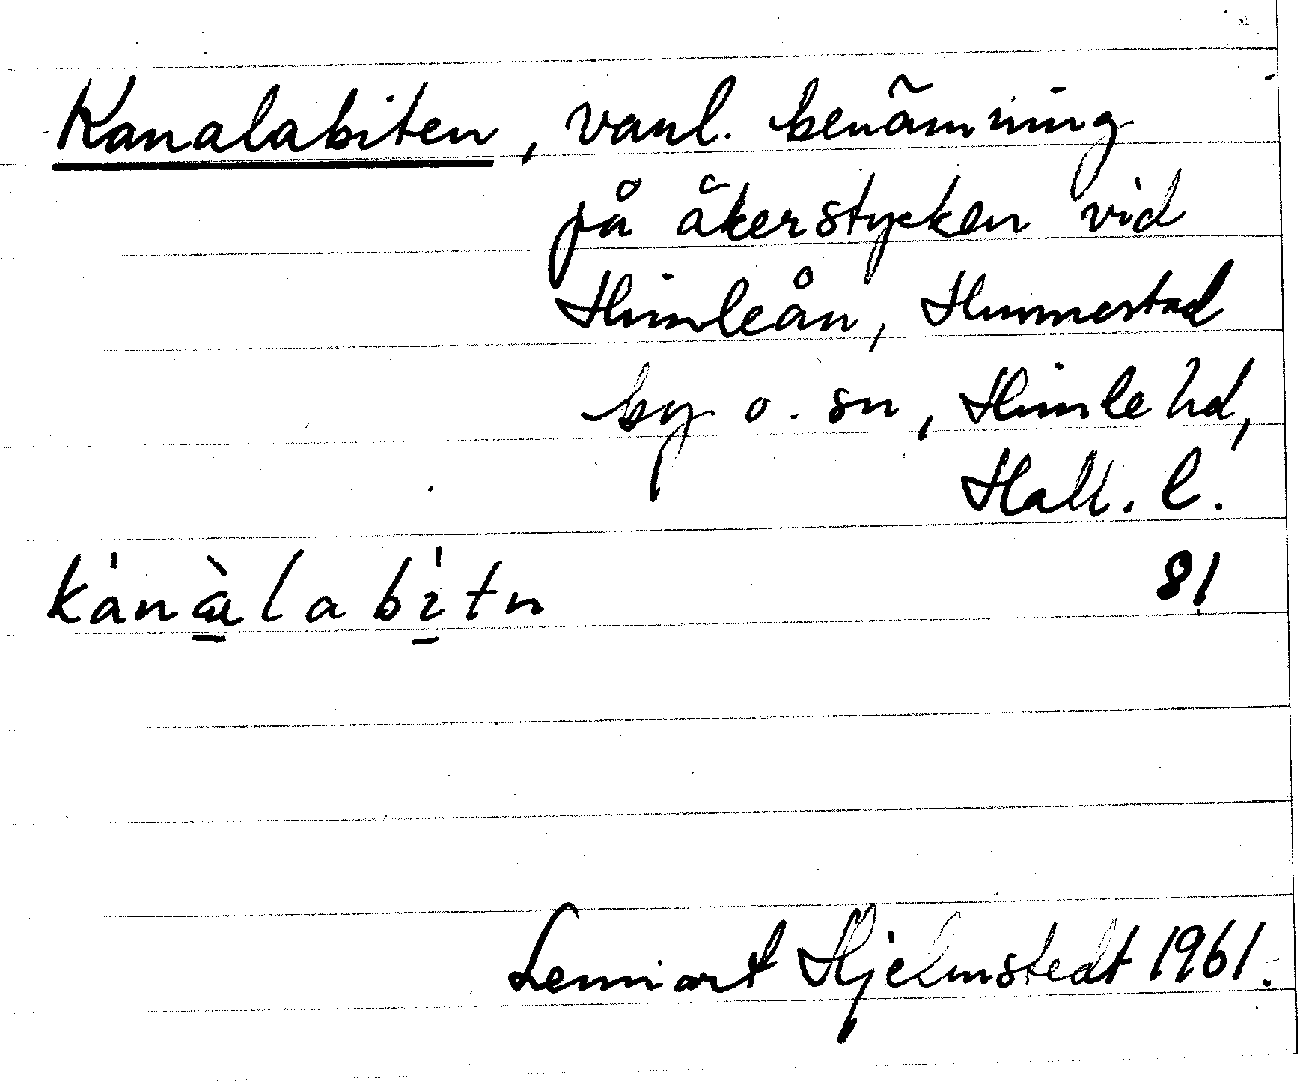 Kanalabiten, vanl. benämning
på åkerstycken vid
Himleån, Hunnestad
by o. sn, Himle hd,
Hall. l.
81
Lennart Hjelmstedt 1961.